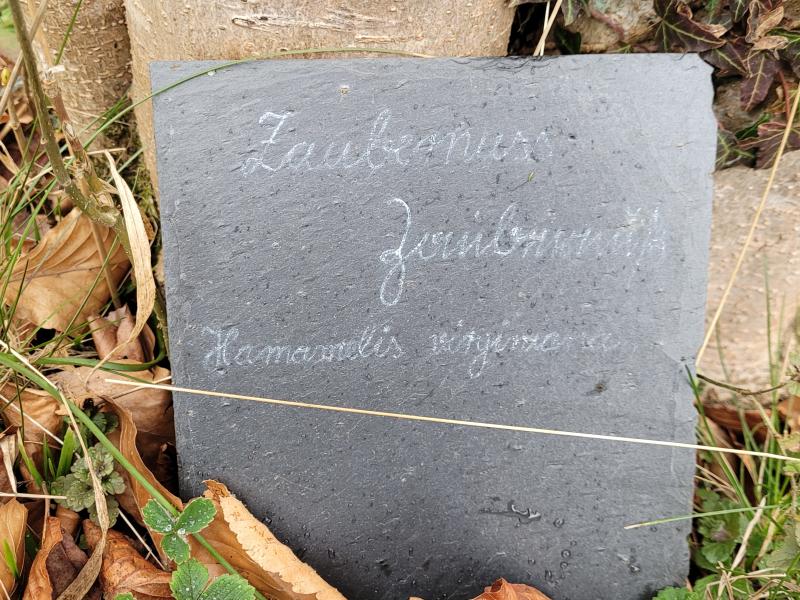 Zaubernuss
Zaubernuß
Hamamelis virginiana